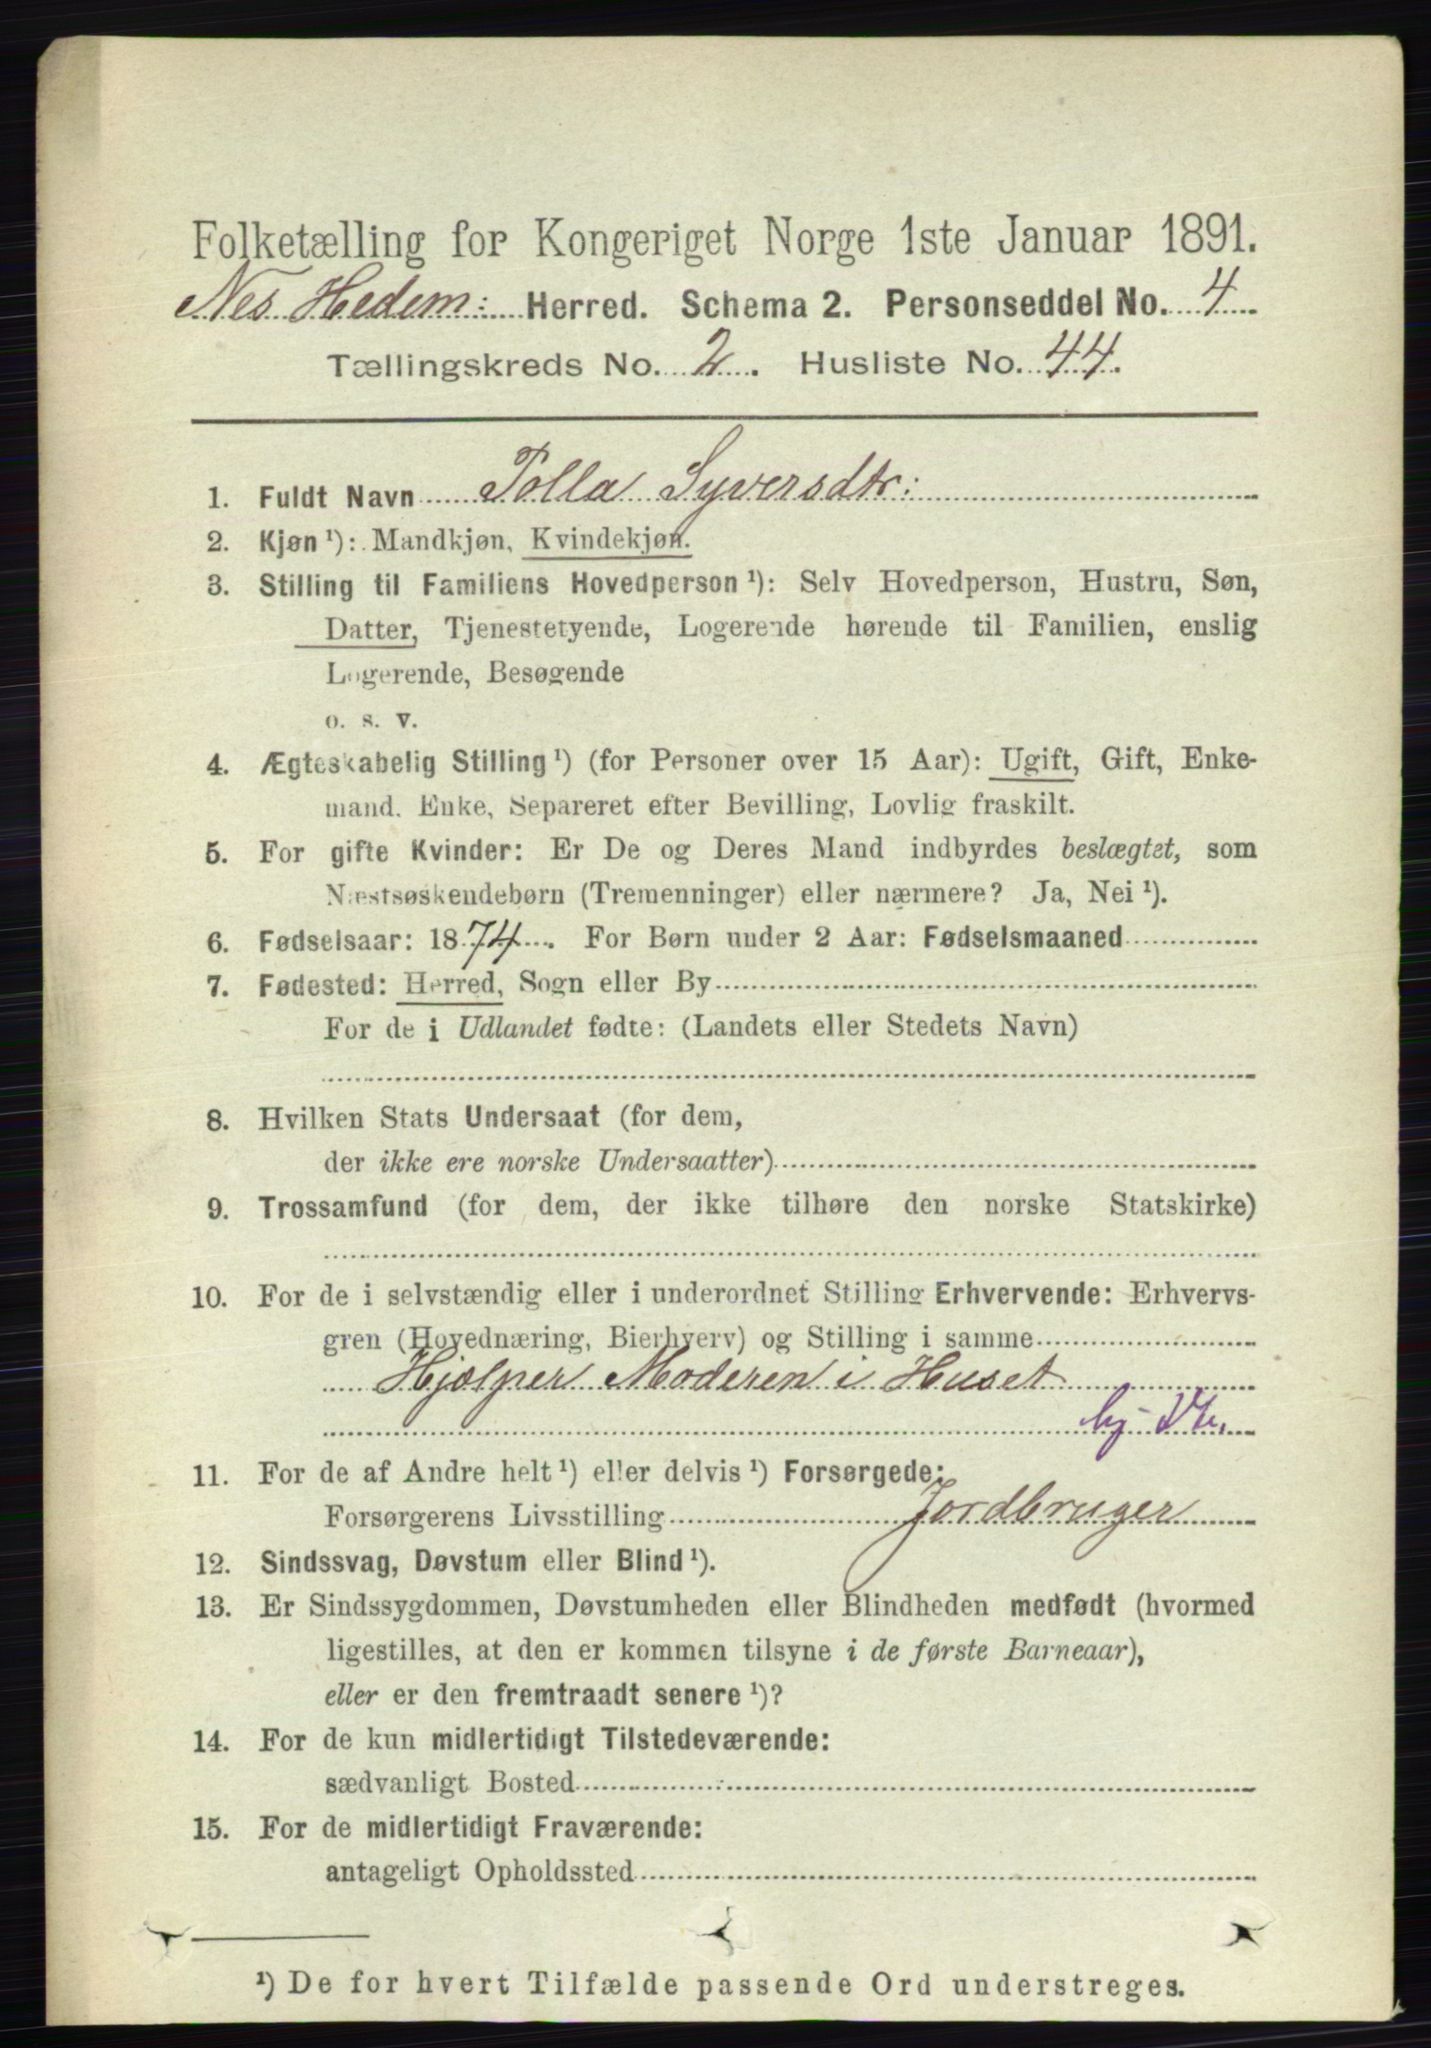 Folketælling for Kongeriget Norge 1ste Januar 1891.
Nes Hedem: Herred. Schema 2. Personseddel No. 4
Tællingskreds No. 2. Husliste No. 44.
1. Fuldt Navn Polla Syversdtr:
2. Kjøn ¹): Mandkjøn, Kvindekjøn.
3. Stilling til Familiens Hovedperson ¹): Selv Hovedperson, Hustru, Søn,
Datter, Tjenestetyende, Logerende hørende til Familien, enslig
Logerende, Besøgende
o. s. v.
4. Ægteskabelig Stilling ¹) (for Personer over 15 Aar): Ugift, Gift, Enke-
mand. Enke, Separeret efter Bevilling, Lovlig fraskilt.
5. For gifte Kvinder: Er De og Deres Mand indbyrdes beslægtet, som
Næstsøskendebørn (Tremenninger) eller nærmere? Ja, Nei ¹).
6. Fødselsaar: 1874. For Børn under 2 Aar: Fødselsmaaned
7. Fødested: Herred, Sogn eller By
For de i Udlandet fødte: (Landets eller Stedets Navn)
8. Hvilken Stats Undersaat (for dem,
der ikke ere norske Undersaatter)
9. Trossamfund (for dem, der ikke tilhøre den norske Statskirke)
10. For de i selvstændig eller i underordnet Stilling Erhvervende: Erhvervs-
gren (Hovednæring, Bierhverv) og Stilling i samme
Hjælper Moderen i Huset
11. For de af Andre helt ¹) eller delvis ¹) Forsørgede:
Forsørgerens Livsstilling Jordbruger
12. Sindssvag, Døvstum eller Blind ¹).
13. Er Sindssygdommen, Døvstumheden eller Blindheden medfødt (hvormed
ligestilles, at den er kommen tilsyne i de første Barneaar),
eller er den fremtraadt senere ¹)?
14. For de kun midlertidigt Tilstedeværende:
sædvanligt Bosted
15. For de midlertidigt Fraværende:
antageligt Opholdssted
¹) De for hvert Tilfælde passende Ord understreges.